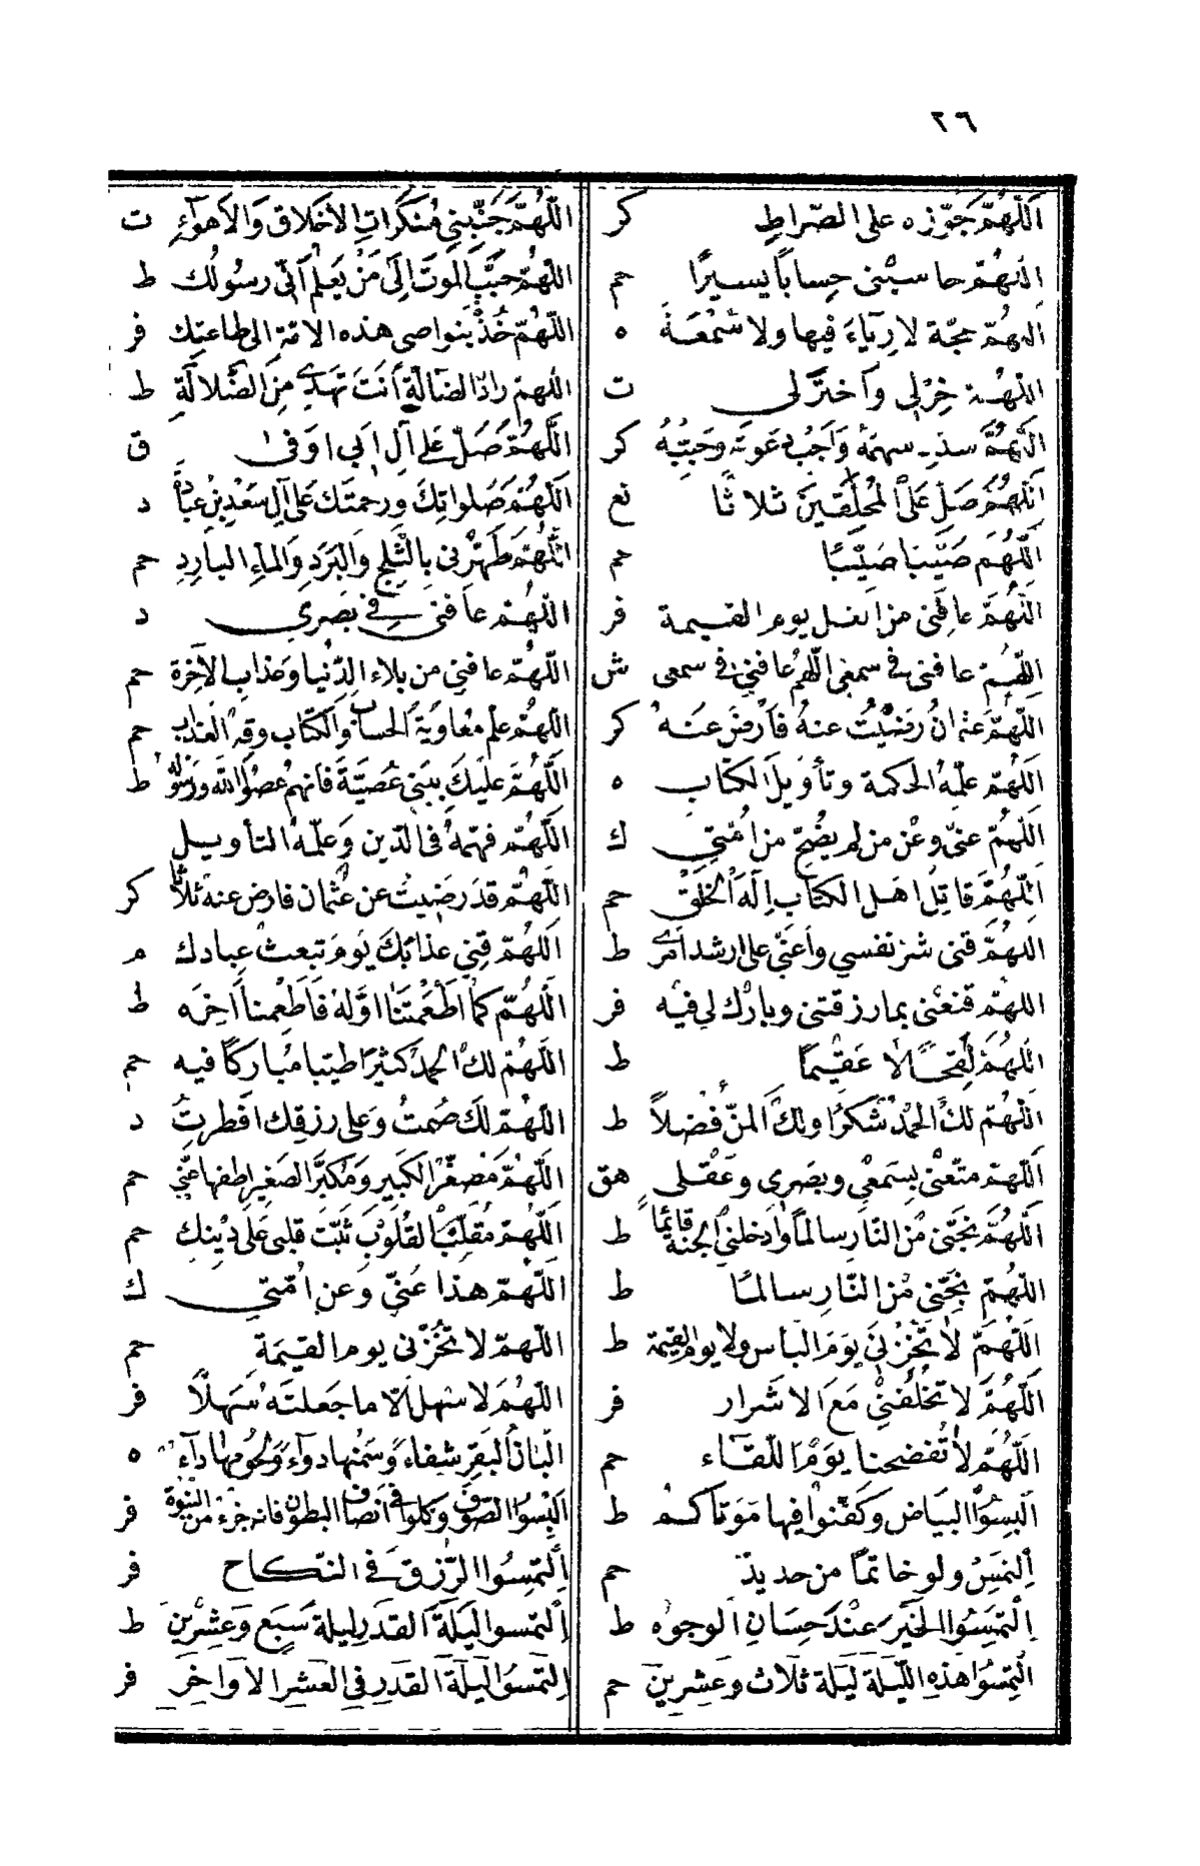 ٢٦
اَللّهُمَّ جَوِّزه على الصّراطِ كر
اللهُمّ حاسبْنى حِسابًا يسيرًا حم
اللهُمّ حجّة لا رِيَاءَ فيها ولا سُمْعَةَ ه
اللّهُمّ خِرْلِى وَاختَرْلى ت
اللّهُمَّ سدّد سهمَهُ وَاَجِبْ دعوَتَهُ وحَبِّبْهُ كر
اَللّهُمَّ صَلِّ عَلَى المُحلِّقينَ ثلاثًا نع
اَللّهُمَّ صَيِّبًا صَيِّبًا حم
اللّهُمَّ عافِنى من يوم القيمة فر
اللّهُمّ عافنى فى سمعى اللّهمّ عافنى فى سمعى ش
اَللّهُمَّ عثمانُ رَضيْتُ عنهُ فَارْضَ عَنه كر
اَللّهُمّ علّمهُ الحكمة وتأويلَ الكتاب ه
اَللّهُمّ عنّى وعَنْ من لم يضَحِّ من اُمّتِى ك
اَللّهُمَّ قاتِلْ اهل الكتاب اِلَهَ الخَلْق حم
اللهُمّ قنى شرّ نفسي وأعنّى على ارشد اَمرى ط
اللهمّ قنعْنى بما رزقتنى وبارك لى فيه فر
اَللّهُمّ لَقِحًا لا عَقيمًا ط
اَللّهُمّ لكَ الحمدُ شكرًا ولكَ المنّ فضلاً ط
اَللّهمّ متّعْنى بِسَمعْي وبصَرِى وعَقْلى هق
اَللّهُمَّ نجّنى مِّنَ النَّارِ سالمًا وادخلنى الجنة قائِمًا ط
اَللّهُمّ نجِّنى مِّنَ النّارِ سالمًا ط
اَللّهُمَّ لا تُخْزِنى يَومَ الباس ولا يوم القيمة ط
اَللّهُمَّ لا تخلّفنِى مَعَ الاشَرار فر
اَللّهُمّ لا تُفضحنا يَوْمَ اللّقَاء حم
اَلبِسُوا البيَاض وكَفّنوا فيها مَوتَاكم ط
اِلتمِسْ ولو خاتمًا من حديدٍ حم
اِلتمِسُوا الخَيْرَ عنْدَ حِسَانِ الوجوه ط
التمِسُوا هٰذِهِ اللّيلَةَ لَيلَة ثَلاث وعشرِينَ حم
اللّهُمّ جَنّبنِي مُنكَراتِ الاَخلاق وَالاَهوآءِ ت
اللّهُمّ حبِّب المَوتَ اِلَى مَنْ يَعلم اَنّى رسُولك ط
اللّهُمّ خُذْ بَنواصى هٰذه الامّةِ الى طاعتِك فر
اللّهم رادّ الضالّةِ أنتَ تَهدِى مِنَ الضّلالَةِ ط
اللّهُمّ صَلِّ عَلى آلِ اَبي اوفى ق
اَللّهُمّ صَلواتِكَ ورحمتَك عَلى آلِ سَعْدِ بْنِ عبادة د
اللّهُمّ طَهِّرْنى بالثّلجِ والبَرَدِ والماءِ البارِدِ حم
اللّهُمّ عافنى فِى بَصَرِي د
اللّهُمّ عافنِى من بلاء الدّنيا وعذاب الآخرة حم
اللّهُمّ علّم مُعاويَةَ الحساب والكتاب وقِه العذاب حم
اللّهُمّ عليكَ ببَنِي عُصَيَّةَ فانهم عصَوُا اللّهَ ورسولَهُ ط
اَللّهُمّ فهّمهُ فى الدّين وَعلّمهُ التأويل
اَللّهُمّ قدَ رضيتُ عن عُثمان فارض عنه ثلاثًا كر
اَللهُمّ قِنِي عذابَكَ يَومَ تبعث عبادك م
اَللّهُمّ كما اَطْعَمْتَنا اوّلهُ فَاَطْعِمنا آخِرَه ط
اَللّهُمّ لكَ الحمدُ كثيرًا طيّبا مُباركًا فيه حم
اللّهُمّ لكَ صُمتُ وَعلى رزقِك افطرتُ د
اَللّهُمَّ مُصغّرَ الكَبيرِ ومُكبّرَ الصّغيرِ اِطفها عنّى حم
اَللّهُمّ مُقلِّبَ القُلوبِ ثَبّت قلبى عَلى دِيْنِك حم
اللّهُمّ هذا عنّى وعن اُمّتى ك
اللّهمّ لا تُخْزِنى يوم القيمَة حم
اللّهُمّ لا سَهل الّا ما جَعلتَهُ سَهلًا فر
اَلبانُ البَقرِ شِفاء وَسمنها دواءٌ ولحُومها دآء ه
اَلبِسُوا الصّوفَ وكلوا فى أنصاف البطون فانه جزءٌ من النبوة فر
اِلتمِسُوا الرّزق فى النّكاح فر
اِلتمسوا ليلَةَ القدرِ ليلة سَبعٍ وعشرِين ط
اِلتمسُوا ليلَةَ القَدرِ فى العشرِ الاَواخرِ فر